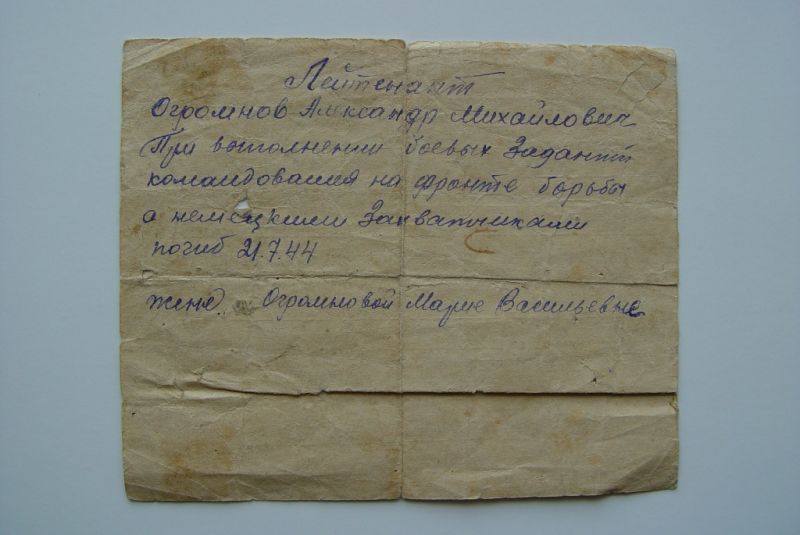 Лейтенант
Огромнов Александр Михайлович
При выполнении боевых Заданий
командования на фронте борьбы
с немецкими Захватчиками
погиб 21.7.44
жене Огромновой Марие Васильевне